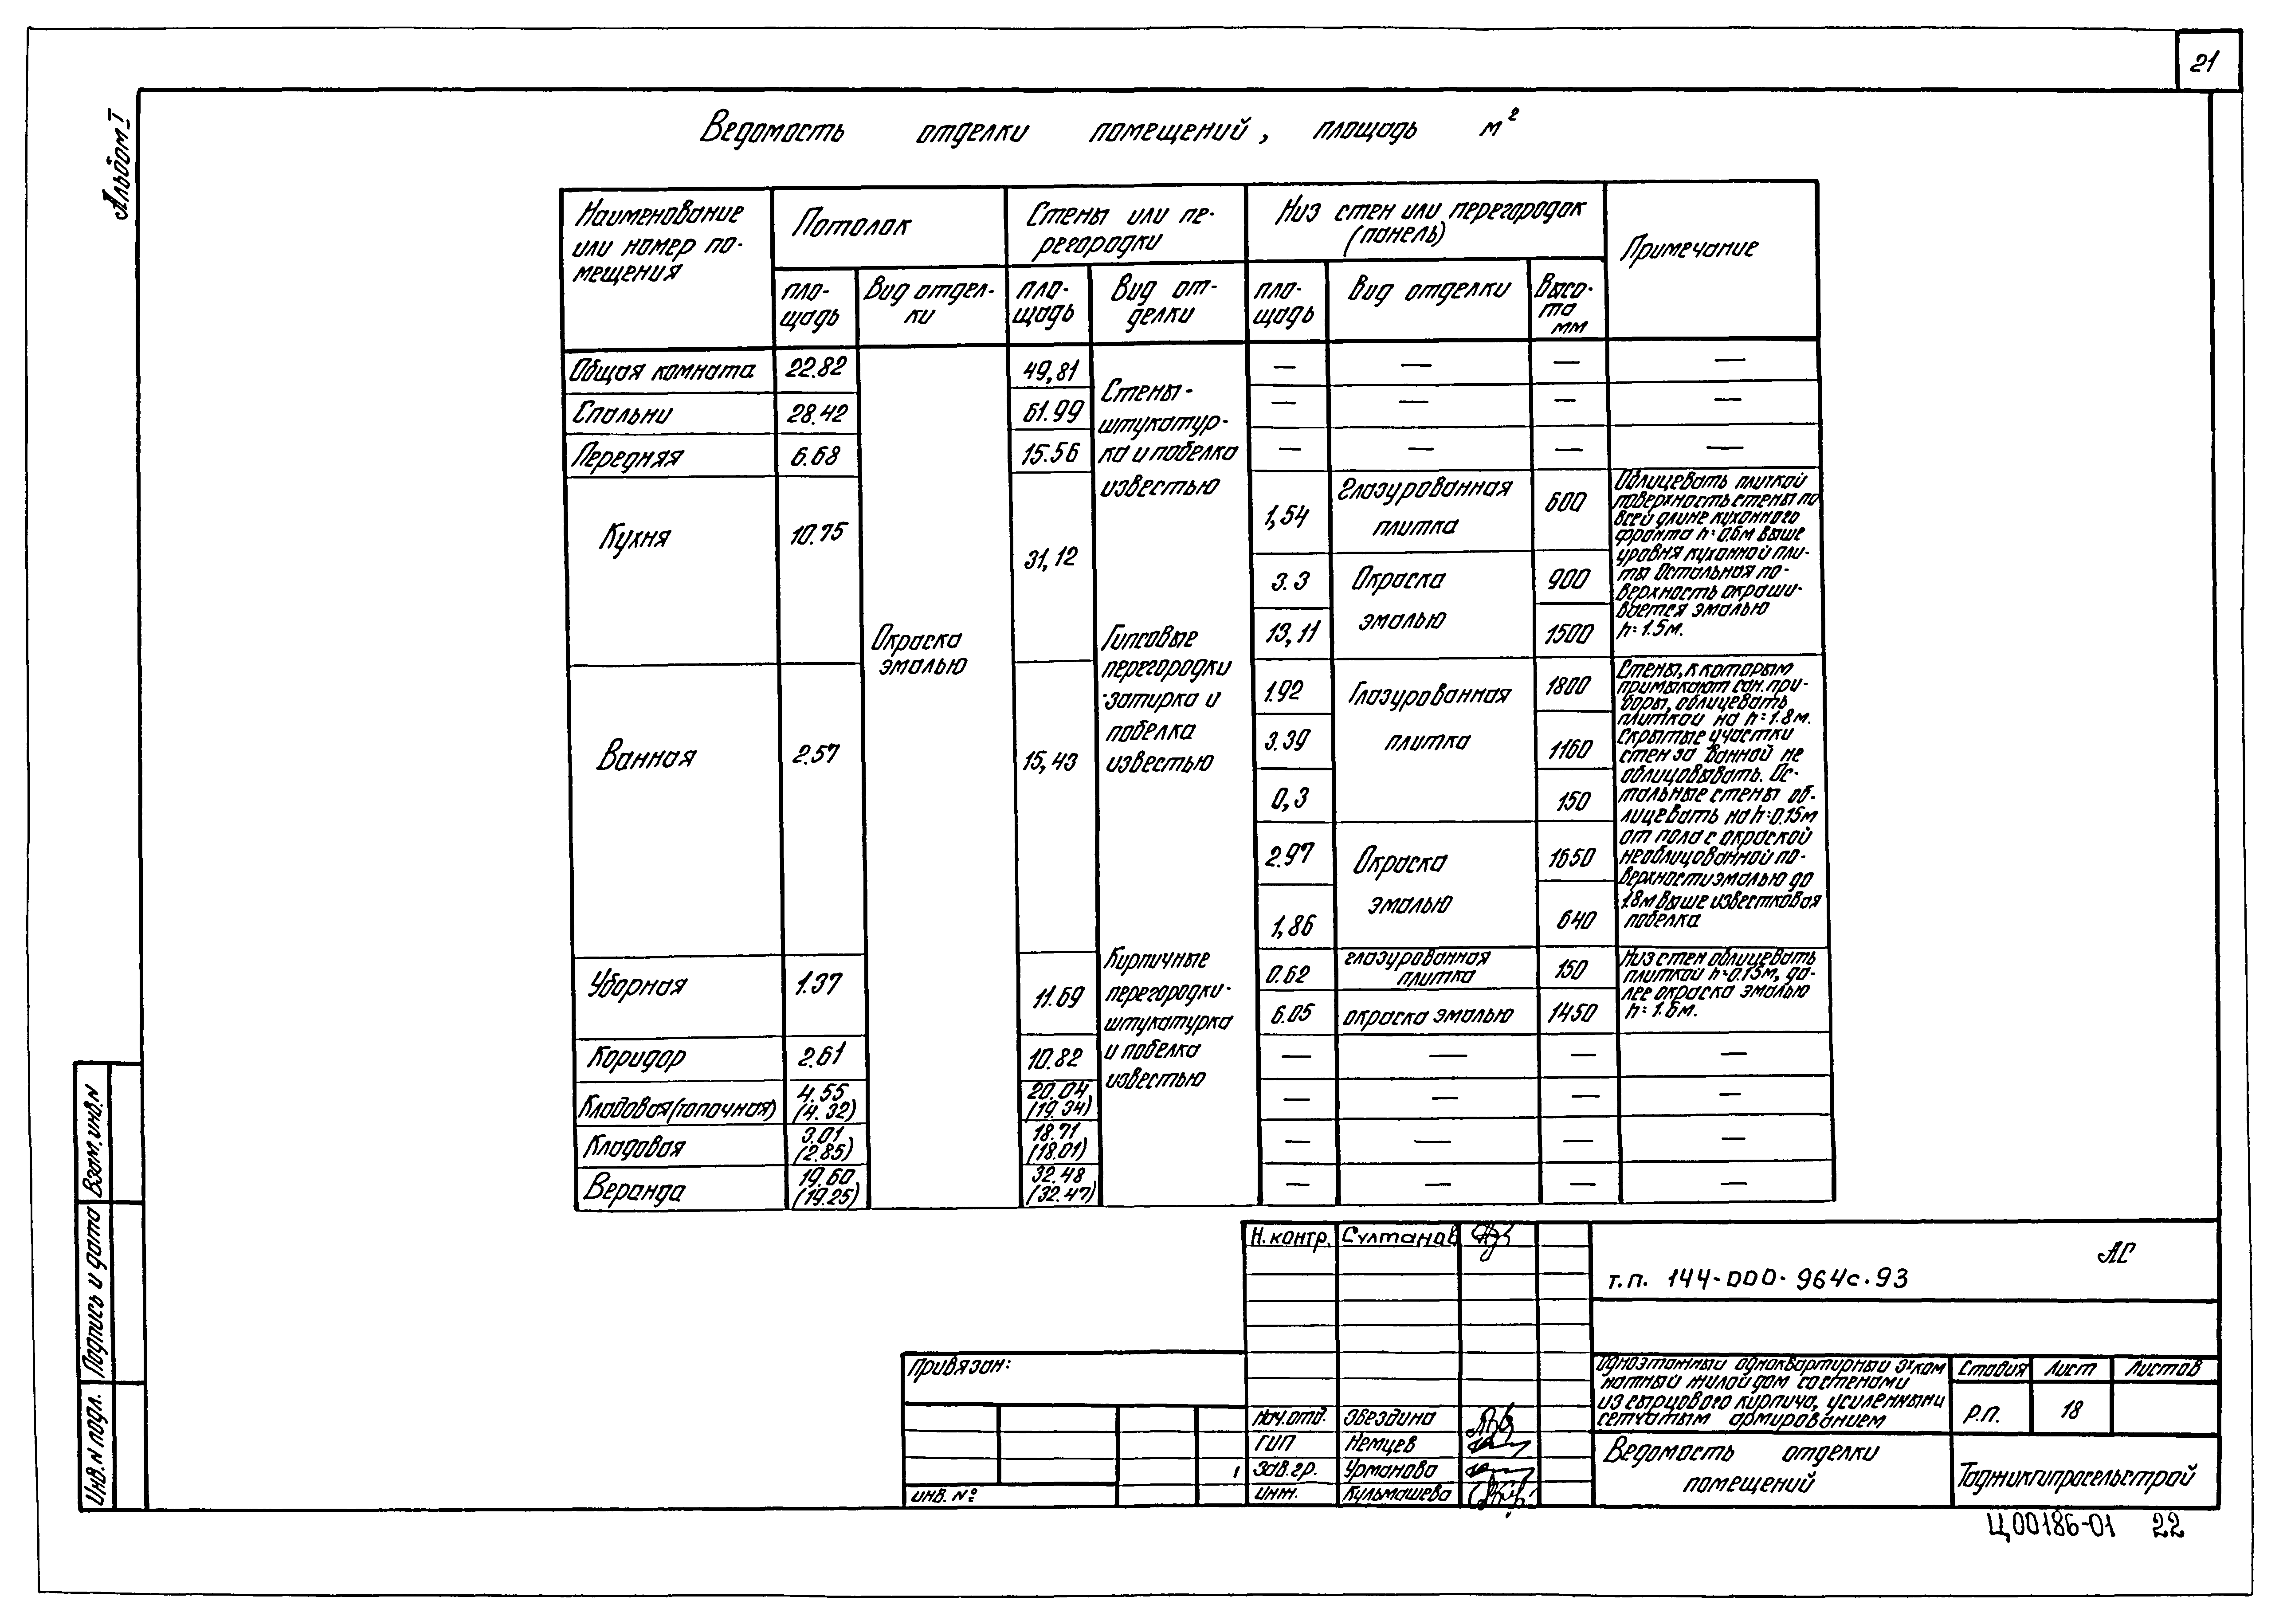 21
Альбом I
Ведомость отделки помещений, площадь м²
Наименование
или номер по-
мещения
Потолок
Стены или пе-
регородки
Низ стен или перегородок
(панель)
Примечание
пло-
щадь
Вид отдел-
ки
пло-
щадь
Вид от-
делки
пло-
щадь
Вид отделки
Высо-
та
мм
Общая комната 22.82 49,81 — — — —
Спальни 28.42 61.99 — — — —
Передняя 6.68 15.56 — — — —
Кухня 10.75 31,12
Окраска
эмалью
Стены -
штукатур-
ка и побелка
известью
Гипсовые
перегородки
-затирка и
побелка
известью
Кирпичные
перегородки-
штукатурка
и побелка
известью
1,54
Глазурованная
плитка
600
3.3
Окраска
эмалью
900
13,11
1500
Облицевать плиткой
поверхность стены по
всей длине кухонного
фронта h=0,6м выше
уровня кухонной пли-
ты Остальная по-
верхность окраши-
вается эмалью
h=1.5м.
Ванная 2.57 15,43
1.92
Глазурованная
плитка
1800
3.39
1160
0,3
150
2.97
Окраска
эмалью
1650
1,86
640
Стены, к которым
примыкают сан. при-
боры, облицевать
плиткой на h=1.8м.
Скрытые участки
стен за ванной не
облицовывать. Ос-
тальные стены об-
лицевать на h=0.15м
от пола с окраской
необлицованной по-
верхности эмалью до
1.8м выше известковая
побелка
Уборная 1.37 11.69
0.62
глазурованная
плитка
150
6.05 окраска эмалью 1450
Низ стен облицевать
плиткой h=0.15м, да-
лее окраска эмалью
h=1.6м.
Коридор 2.61 10.82 — — — —
Кладовая(топочная) 4.55 (4.32) 20.04 (19.34) — — — —
Кладовая 3.01 (2.85) 18.71 (18.01) — — — —
Веранда 19.60 (19.25) 32.48 (32.47) — — — —
Взам. инв.N
Подпись и дата
Инв.N подл.
Н. контр. Султанов
АС
т.п. 144-000-964с.93
Привязан:
Нач.отд. Звездина
ГИП Немцев
Зав.гр. Урманова
инж. Кульмашева
инв. №
Одноэтажный одноквартирный 3хком
натный жилой дом со стенами
из сырцового кирпича, усиленными
сетчатым армированием
Стадия Лист Листов
Р.П. 18
Ведомость отделки
помещений
Таджикгипросельстрой
Ц00186-01 22